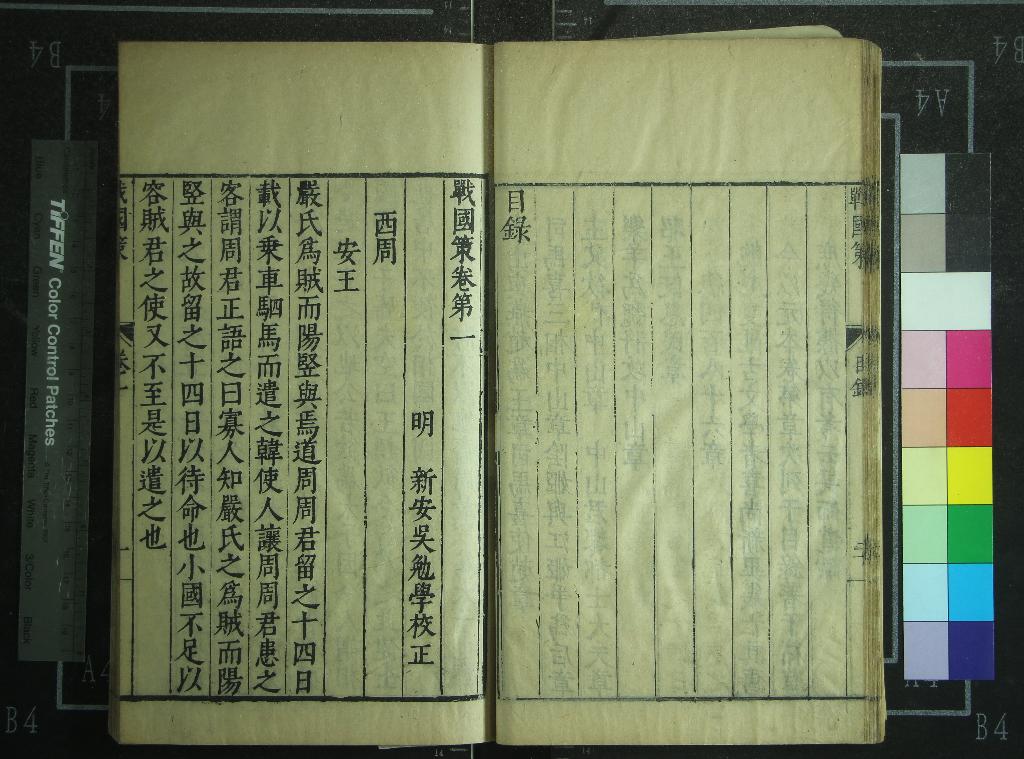 戰國策
目錄
目錄
戰國策卷第一
明　新安吳勉學校正
西周
安王
嚴氏爲賊而陽竪與焉道周周君留之十四日
載以乘車駟馬而遣之韓使人讓周周君患之
客謂周君正語之曰寡人知嚴氏之爲賊而陽
竪與之故留之十四日以待命也小國不足以
容賊君之使又不至是以遣之也
戰國策
卷一
一
TIFFEN Color Control Patches
Blue
Cyan
Green
Yellow
Red
Magenta
White
3/Color
Black
B4
A4
B4
A4
B4
A4
B4